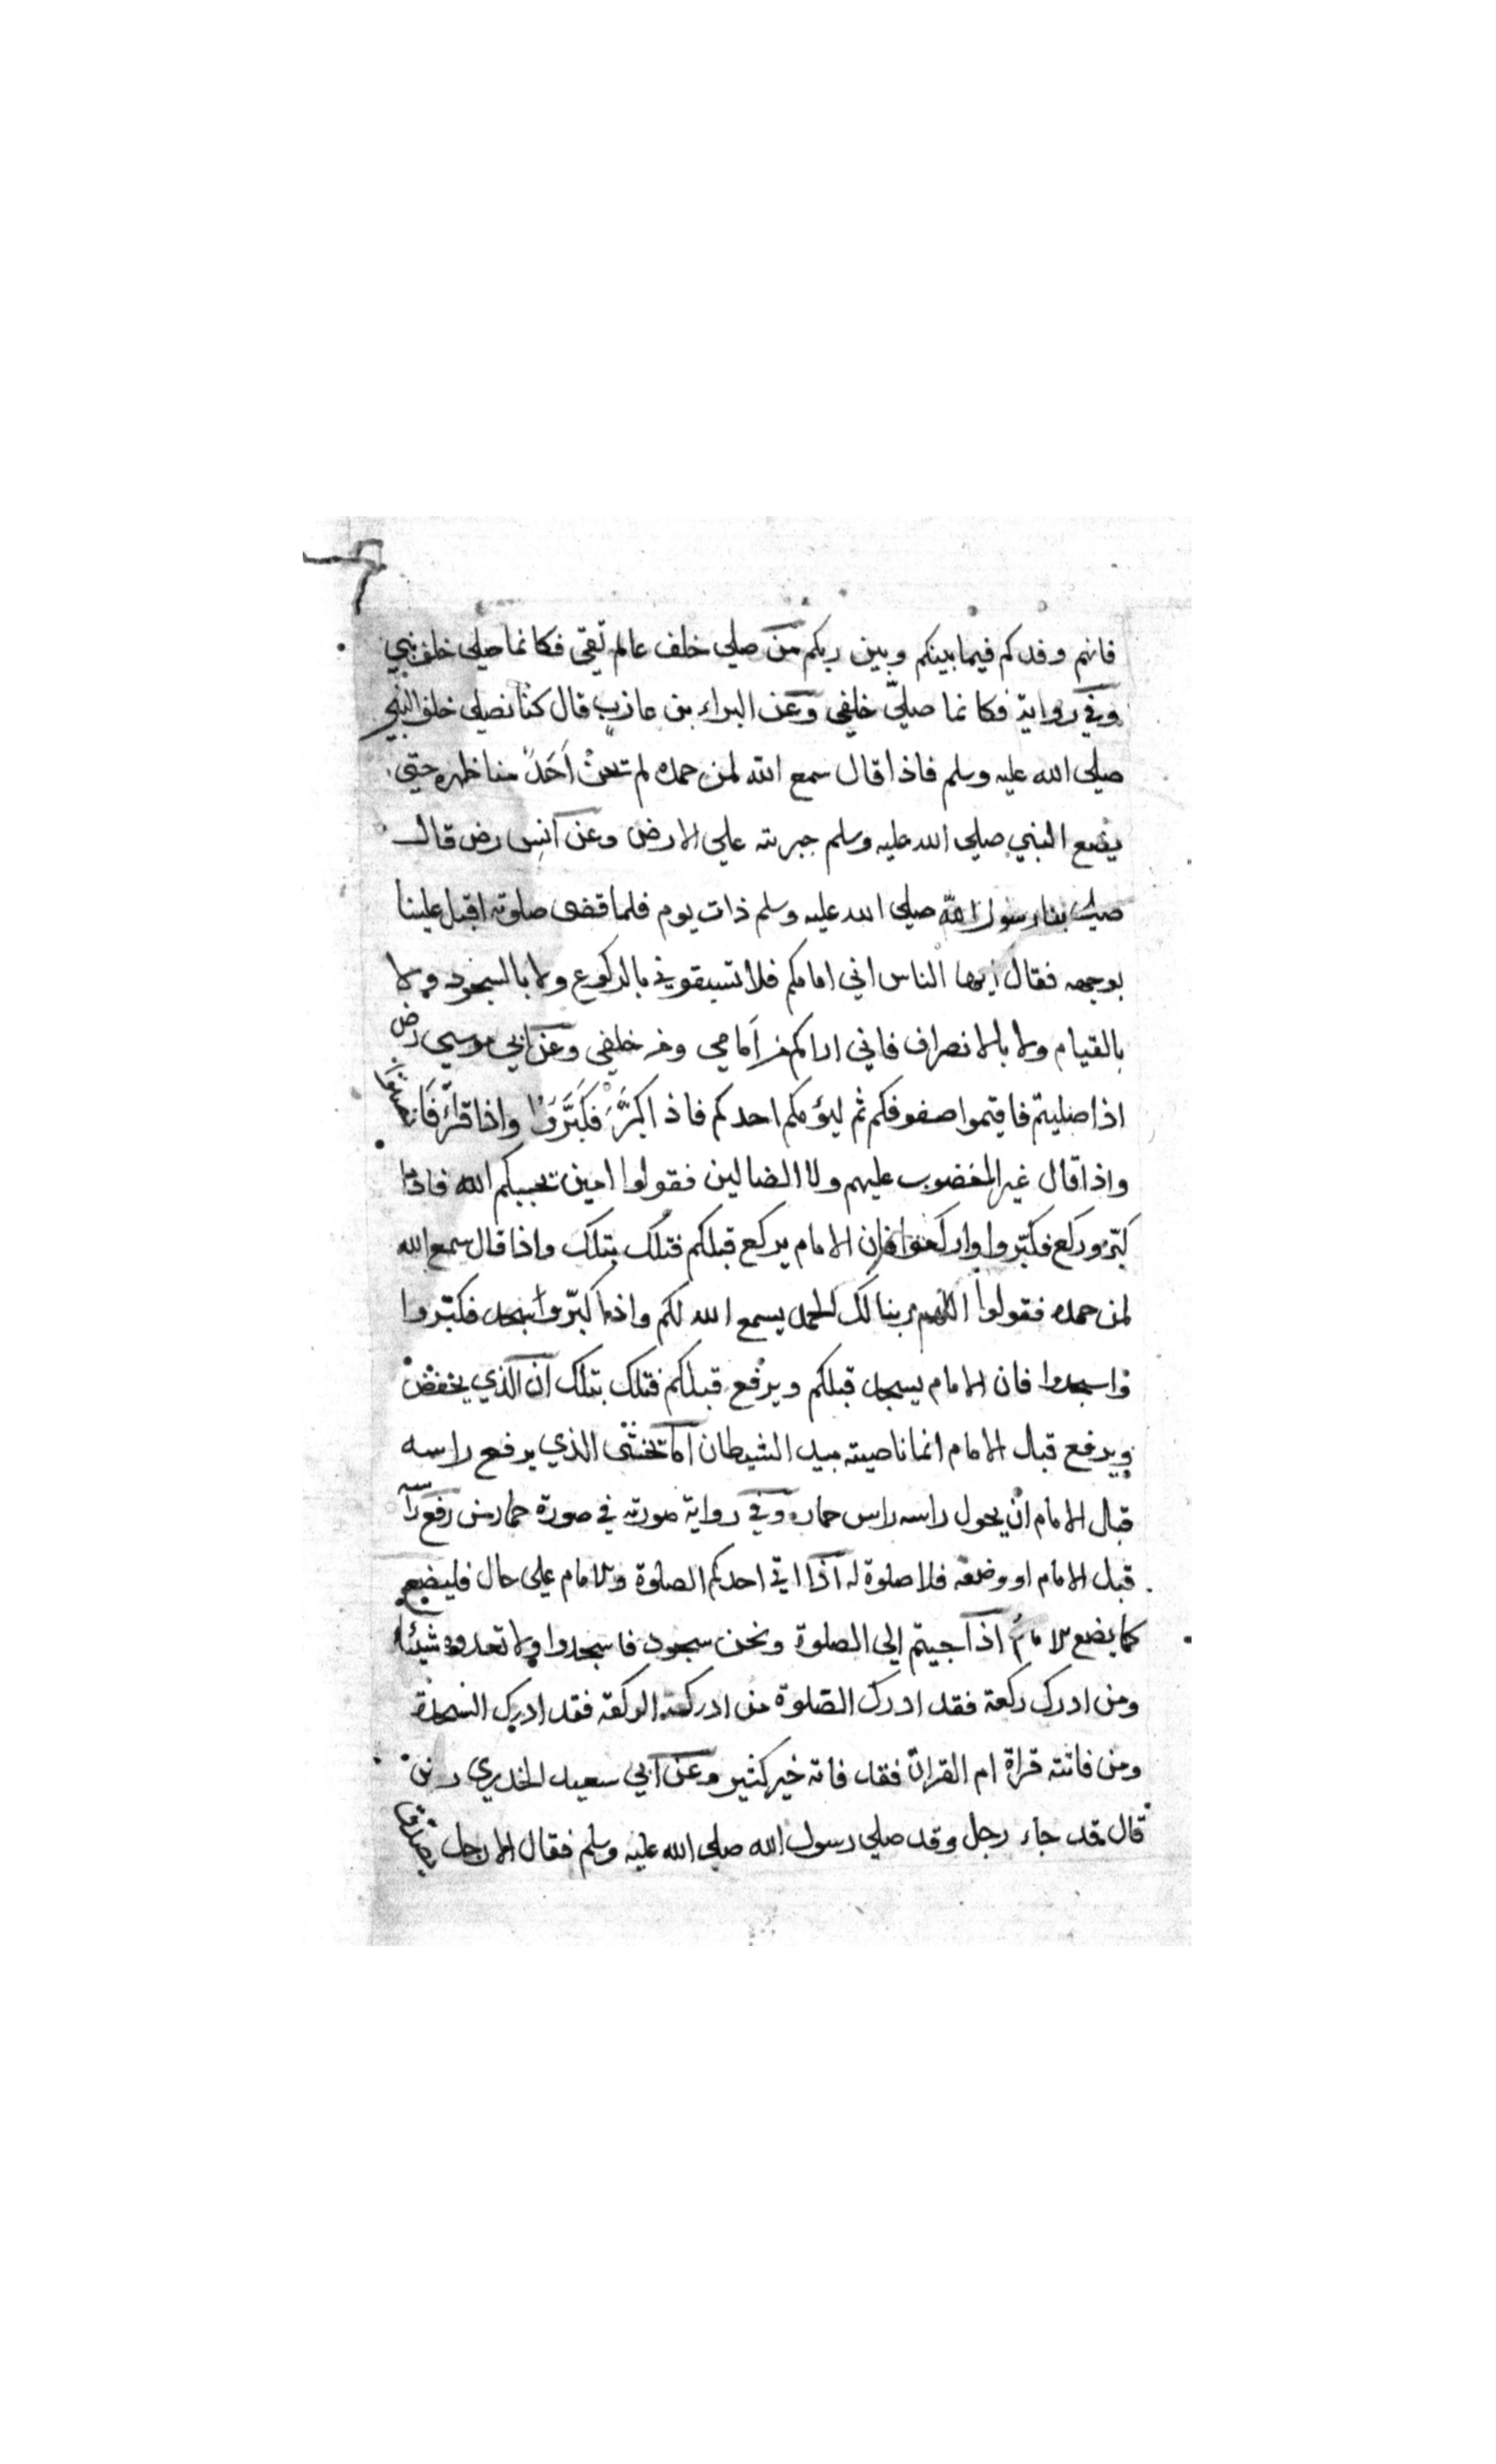 فانهم وفدكم فيما بينكم وبين ربكم من صلى خلف عالم تقي فكانما صلى خلف نبي
وفي رواية فكانما صلّي خلفي وعن البراء بن عازب قال كنا نصلي خلف النبي
صلى الله عليه وسلم فاذا قال سمع الله لمن حمده لم تحن احد منا ظهره حتى
يضع النبي صلى الله عليه وسلم جبهته على الارض وعن انس رض قال
صلى بنا رسول الله صلى الله عليه وسلم ذات يوم فلما قضى صلوته اقبل علينا
بوجهه فقال ايها الناس اني امامكم فلا تسبقوني بالركوع ولا بالسجود ولا
بالقيام ولا بالانصراف فاني اراكم من امامي ومن خلفي وعن ابي موسي رض
اذا صليتم فاقيموا صفوفكم ثم ليؤمكم احدكم فاذا كبّر فكبّروا واذا قرأ فانصتوا
واذا قال غير المغضوب عليهم ولا الضالين فقولوا امين يجبكم الله فاذا
كبّر وركع فكبّروا واركعوا فان الامام يركع قبلكم فتلك بتلك واذا قال سمع الله
لمن حمده فقولوا اللهم ربنا لك الحمد يسمع الله لكم واذا كبّر وسجد فكبّروا
واسجدوا فان الامام يسجد قبلكم ويرفع قبلكم فتلك بتلك ان الذي يخفض
ويرفع قبل الامام انما ناصيته بيد الشيطان اما تخشى الذي يرفع راسه
قبل الامام ان يحول راسه راس حمار وفي رواية صورته في صورة حمار من رفع راسه
قبل الامام او وضعه فلا صلوة له اذا اتي احدكم الصلوة والامام على حال فليضع
كما يضع الامام اذا جيتم الى الصلوة ونحن سجود فاسجدوا ولا تعدوه شيئا
ومن ادرك ركعة فقد ادرك الصّلوة من ادرك الركعة فقد ادرك السجدة
ومن فاتته قراة ام القران فقد فاته خير كثير وعن ابي سعيد الخدري رض
قال قد جاء رجل وقد صلى رسول الله صلى الله عليه وسلم فقال الا رجل يتصدق